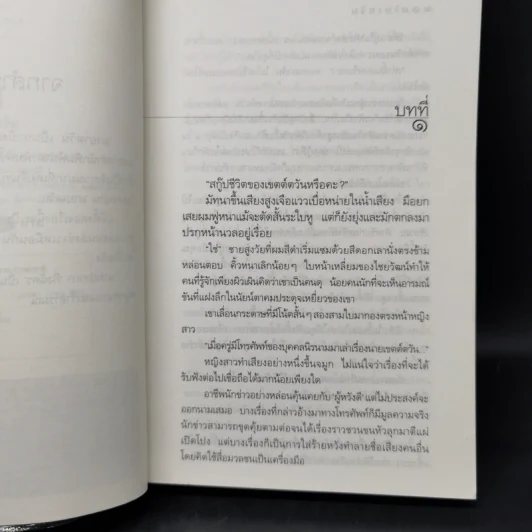 บทที่
๑
"สกู๊ปชีวิตของเขตต์ตวันหรือคะ?"
มัทนาขึ้นเสียงสูงเจือแววเบื่อหน่ายในน้ำเสียง มือยก
เสยผมฟูหน้าแม้จะตัดสั้นระใบหู แต่ก็ยังยุ่งและมักตกลงมา
ปรกหน้านวลอยู่เรื่อย
"ใช่" ชายสูงวัยที่ผมสีดำเริ่มแซมด้วยสีดอกเลานั่งตรงข้าม
หล่อนตอบ คิ้วหนาเลิกน้อยๆ ใบหน้าเหลี่ยมของไชยวัฒน์ทำให้
คนที่รู้จักเพียงผิวเผินคิดว่าเขาเป็นคนดุ น้อยคนนักที่จะเห็นอารมณ์
ขันที่แฝงลึกในนัยน์ตาคมประดุจเหยี่ยวของเขา
เขาเลื่อนกระดาษที่มีโน้ตสั้นๆ สองสามใบมากองตรงหน้าหญิง
สาว
"เมื่อครู่มีโทรศัพท์ของบุคคลนิรนามมาเล่าเรื่องนายเขตต์ตวัน..."
หญิงสาวทำเสียงอย่างหนึ่งขึ้นจมูก ไม่แน่ใจว่าเรื่องที่จะได้
รับฟังต่อไปเชื่อถือได้มากน้อยเพียงใด
อาชีพนักข่าวอย่างหล่อนคุ้นเคยกับ 'ผู้หวังดี' แต่ไม่ประสงค์จะ
ออกนามเสมอ บางเรื่องที่กล่าวอ้างมาทางโทรศัพท์ก็มีมูลความจริง
นักข่าวสามารถขุดคุ้ยตามต่อจนได้เรื่องราวชวนขนหัวลุกมาตีแผ่
เปิดโปง แต่บางเรื่องก็เป็นการใส่ร้ายหวังทำลายชื่อเสียงคนอื่น
โดยคิดใช้สื่อมวลชนเป็นเครื่องมือ